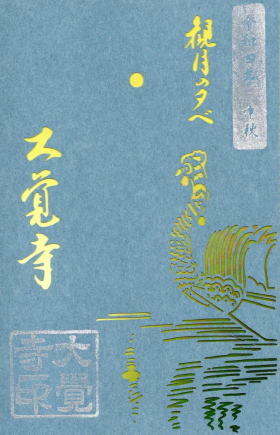 令和四年 中秋
観月の夕べ
大覚寺
大覺
寺印